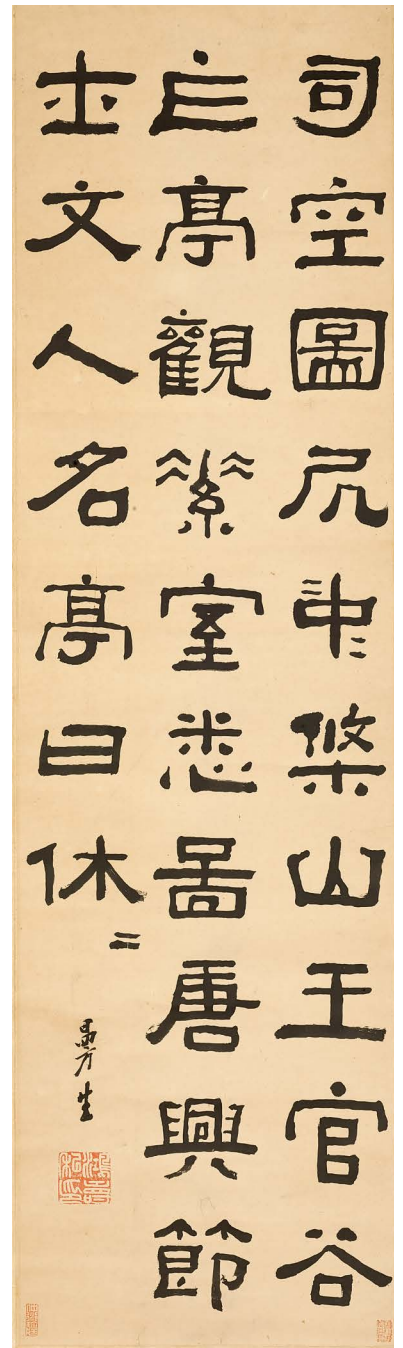 司空圖尻中條山王官谷
亡亭觀素室悉啚唐興節
士文人名亭曰休二
曼生